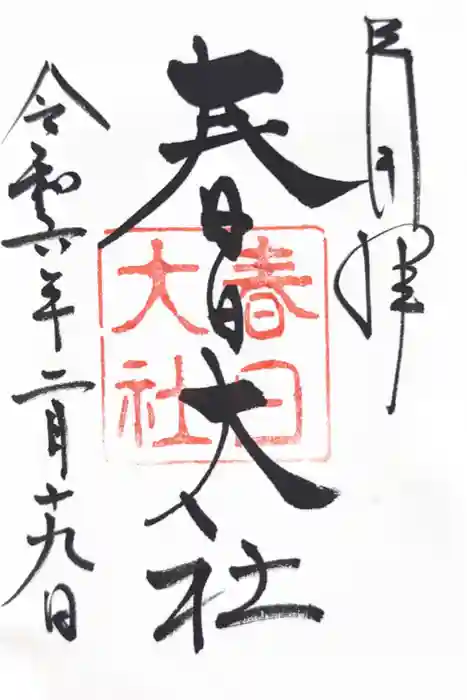 奉拝
春日大社
春日大社
令和六年二月十九日